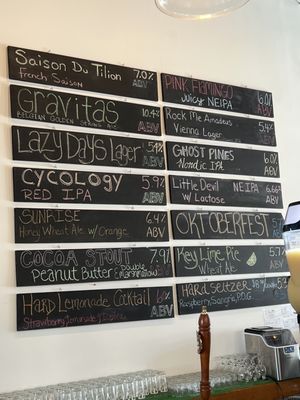 Saison Du Tilion 7.0%
French Saison ABV
Gravitas 10.4%
Belgian Golden Strong Ale ABV
Lazy Days Lager
ABV
Cycology 5.9%
Red IPA ABV
Sunrise 6.4%
Honey Wheat Ale w/ Orange ABV
Cocoa Stout 7.9%
Peanut Butter & Double Marshmallow ABV
Hard Lemonade Cocktail
Strawberry Lemonade ABV
Pink Flamingo 6.0%
Juicy NEIPA ABV
Rock Me Amadeus 5.4%
Vienna Lager ABV
Ghost Pines 6.0%
Nordic IPA ABV
Little Devil NEIPA 6.66%
w/ Lactose ABV
Oktoberfest
ABV
Key Lime Pie 5.7%
Wheat Ale ABV
Hard Seltzer
Raspberry Sangria, P.O.G. ABV